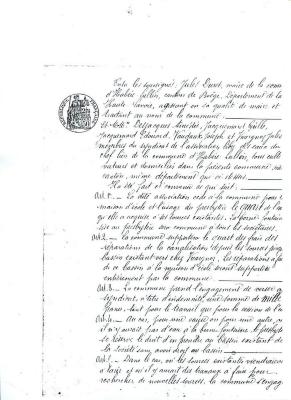 Entre les soussignés, Jules Duret, maire de la com
d'Habère Lullin, canton de Boëge, Département de la
Haute Savoie, agissant en sa qualité de maire et
traitant au nom de la commune.
Et MM. Desjacques Amédée, Jacquemard
Jacquemard Edmond, Joseph et Jules
membres du syndicat de l'association des eaux du
chef lieu de la commune d'Habère Lullin, tous cult
natures et domiciliés dans la susdite commune
canton, même département que ci-dessus
Il a été fait et convenu ce qui suit:
Art. 1. — La dite association cède à la commune pour
maison d'école et l'usage du presbytère le quart de l'
qu'elle a acquise et des sources existantes. La borne fontaine
au presbytère sera commune à tous les sociétaires.
Art. 2. — La commune supportera le quart des frais des
réparations de la canalisation depuis les sources jusq
bassin existant vers chez les réparations à
de ce bassin à la maison d'école seront supportées
entièrement par la commune.
Art. 3. — La commune prend l'engagement de verser
syndicat, à titre d'indemnité, une somme de mille
francs, tant pour le travail que pour la cession de l'
Art. 4. — Au cas, pour une cause ou pour une autre,
il n'y aurait pas d'eau à la borne fontaine, le presbytè
se réserve le droit d'en prendre au bassin existant de
la société sans avoir droit au bassin
Art. 5. Dans le cas, où les sources existantes viendraient
à tarir et où il y aurait des travaux à faire pour
rechercher de nouvelles sources, la commune s'engag